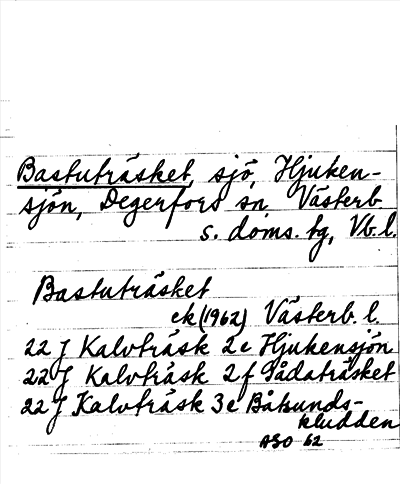 Bastuträsket, sjö, Hjuken-
sjön, Degerfors sn Västerb
s. doms. tg, Vb. l.
Bastuträsket
ek (1962) Västerb. l.
22 J Kalvträsk 2e Hjukensjön
22 J Kalvträsk 2f Pådaträsket
22 J Kalvträsk 3e Båtsunds-
kludden
ASO 62